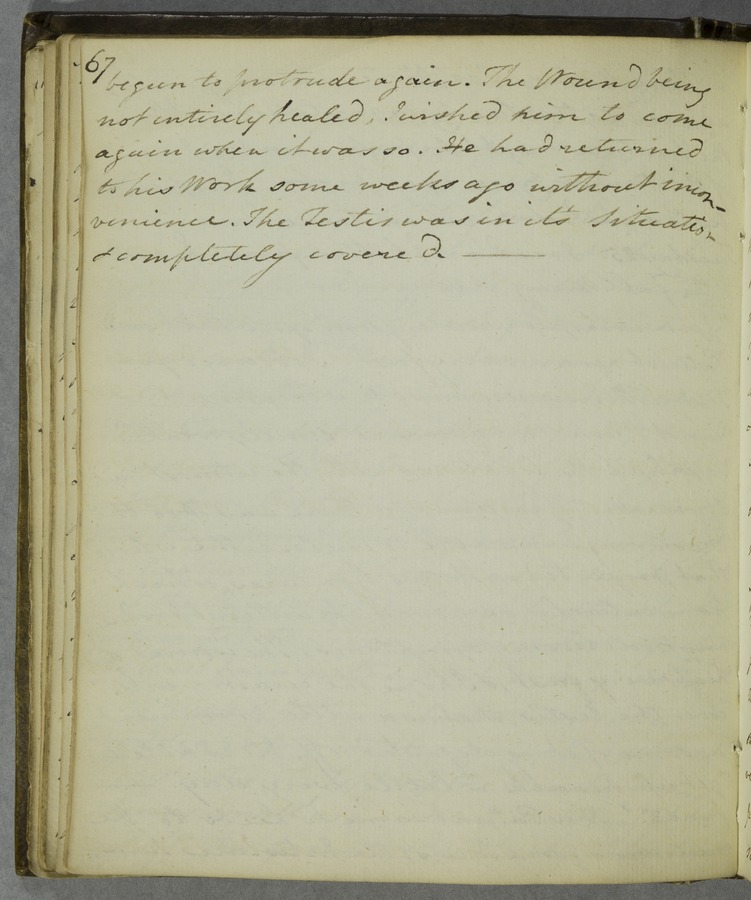 67
begun to protrude again. The Wound being
not entirely healed, I wished him to come
again when it was so. He had returned
to his Work some weeks ago without incon-
venience. The Testis was in it's Situation
& completely covered. ———